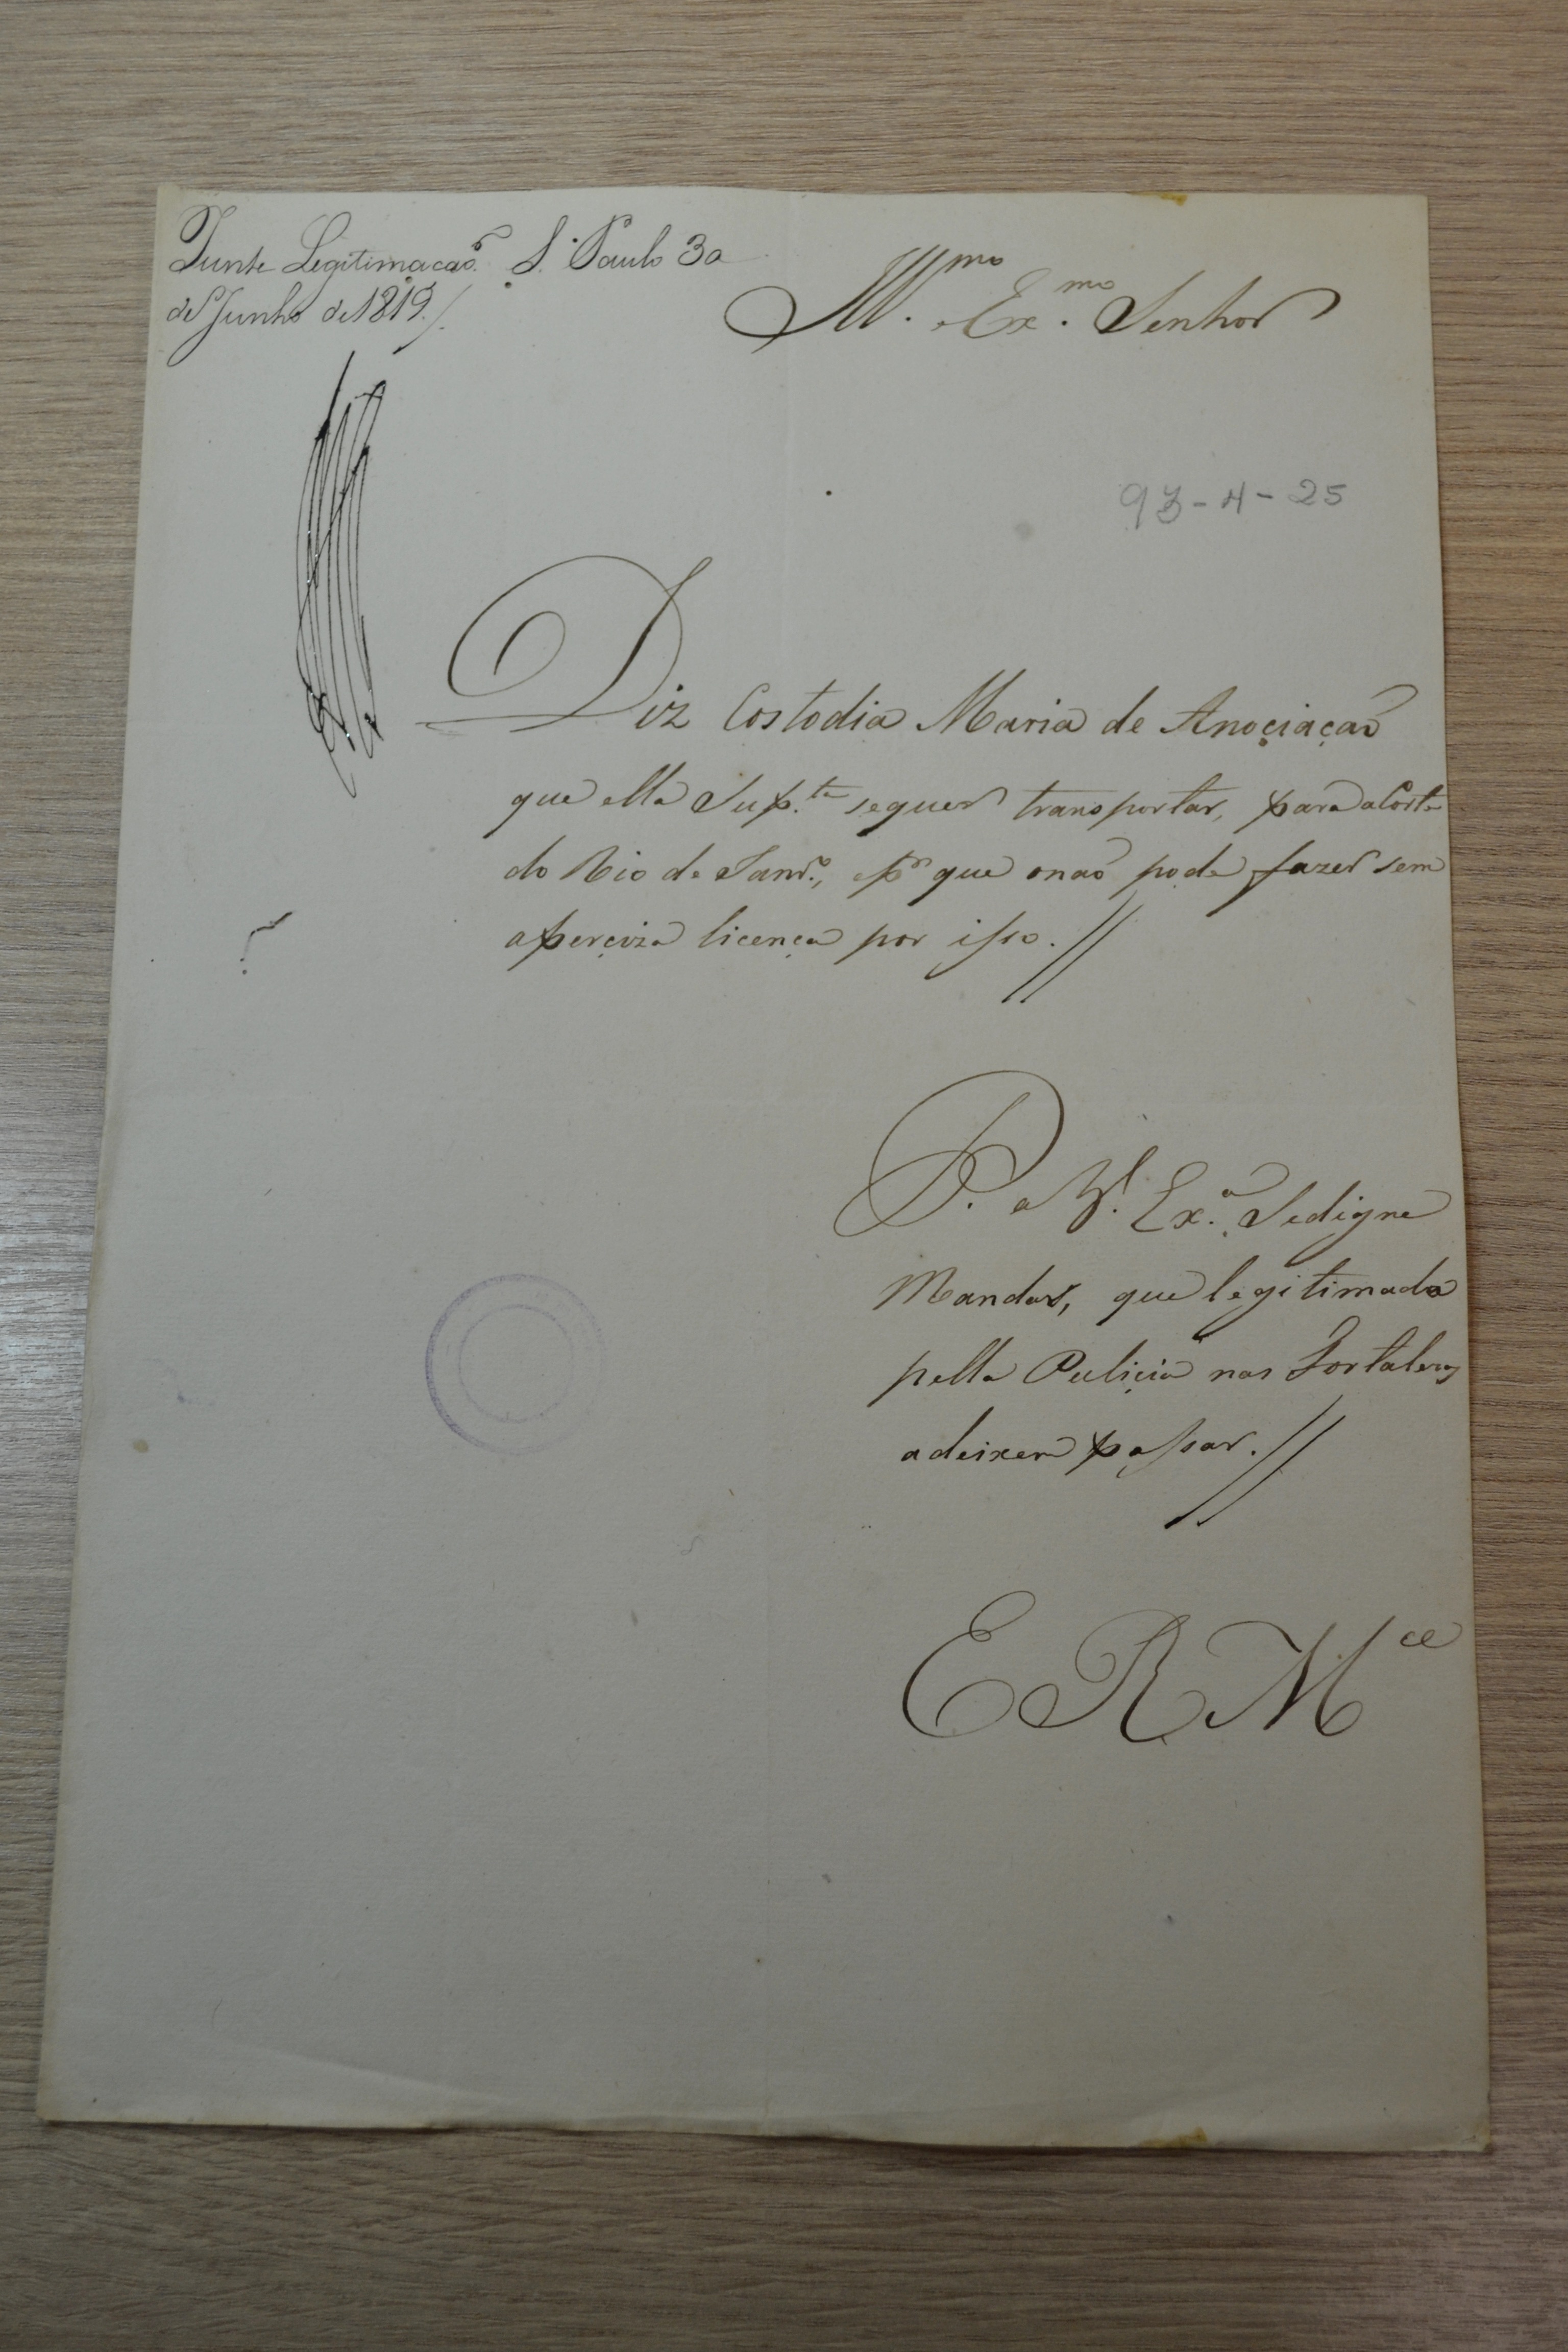 Junte Legitimaçaõ. S. Paulo 30
de Junho de 1819./.
Ill.mo Ex.mo Senhor
93-4-25
Diz Costodia Maria de Anoçiaçaõ
que ella Sup.te sequer transportar, para a Corte
do Rio de Janr.o, epr que onaõ pode fazer sem
aperçiza licença por isso.//
P. a V. Ex.a Sedigne
Mandar, que legitimada
pella Puliçia nas Fortalezas
adeixem passar.//
E R M ce